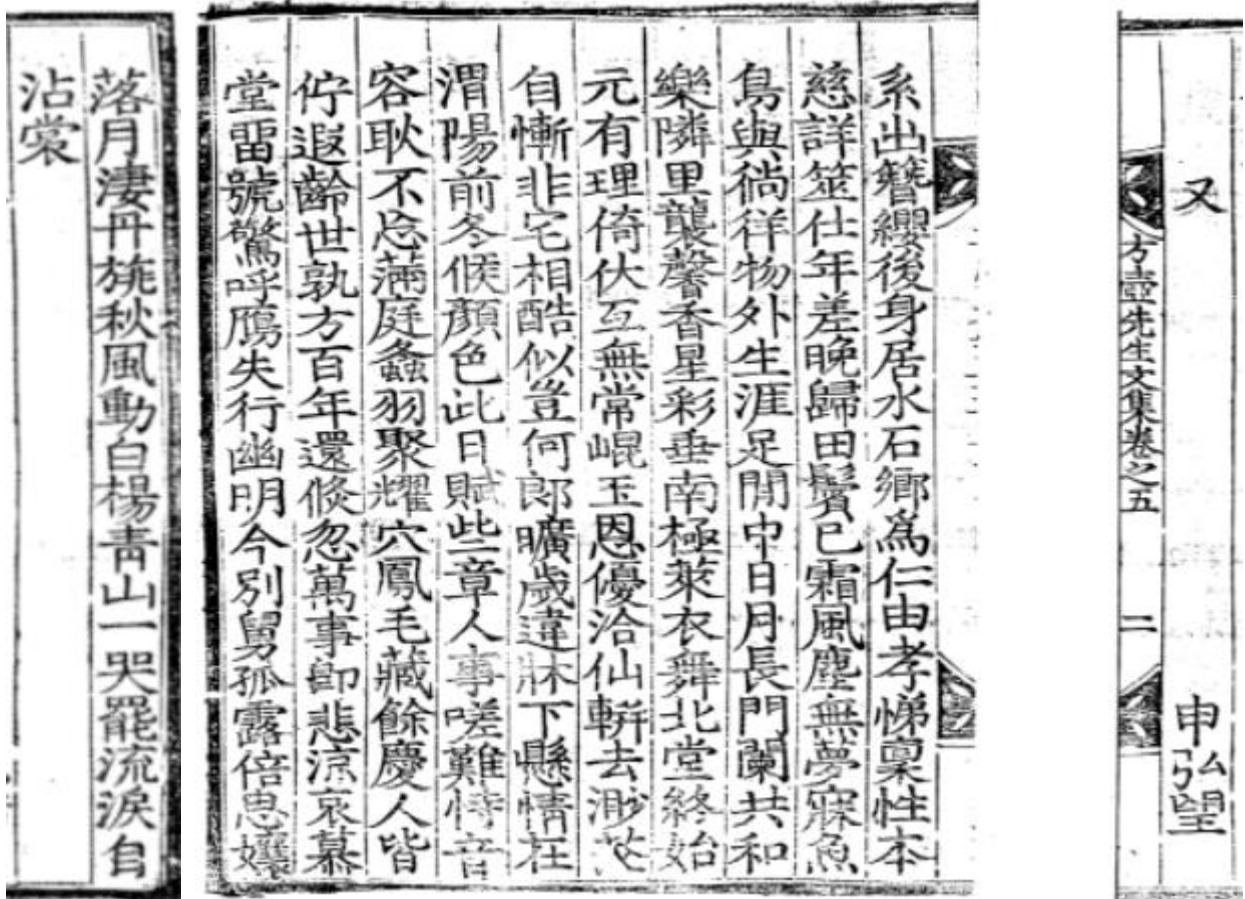 又 申弘望
方壺先生文集卷之五 二
系出簪纓後身居水石鄉爲仁由孝悌稟性本
慈詳筮仕年差晩歸田鬢已霜風塵無夢寐魚
鳥與徜徉物外生涯足閒中日月長門闌共和
樂隣里襲馨香星彩垂南極萊衣舞北堂終始
元有理倚伏互無常崐玉恩優洽仙軿去渺茫
自慚非宅相酷似豈何郎曠歲違牀下懸情在
渭陽前冬候顔色此日賦些章人事嗟難恃音
容耿不忘滿庭螽羽聚耀穴鳳毛藏餘慶人皆
佇遐齡世孰方百年還倏忽萬事卽悲涼哀慕
堂畱號驚呼鴈失行幽明今別舅孤露倍思孃
落月淒丹旐秋風動白楊靑山一哭罷流淚自
沾裳